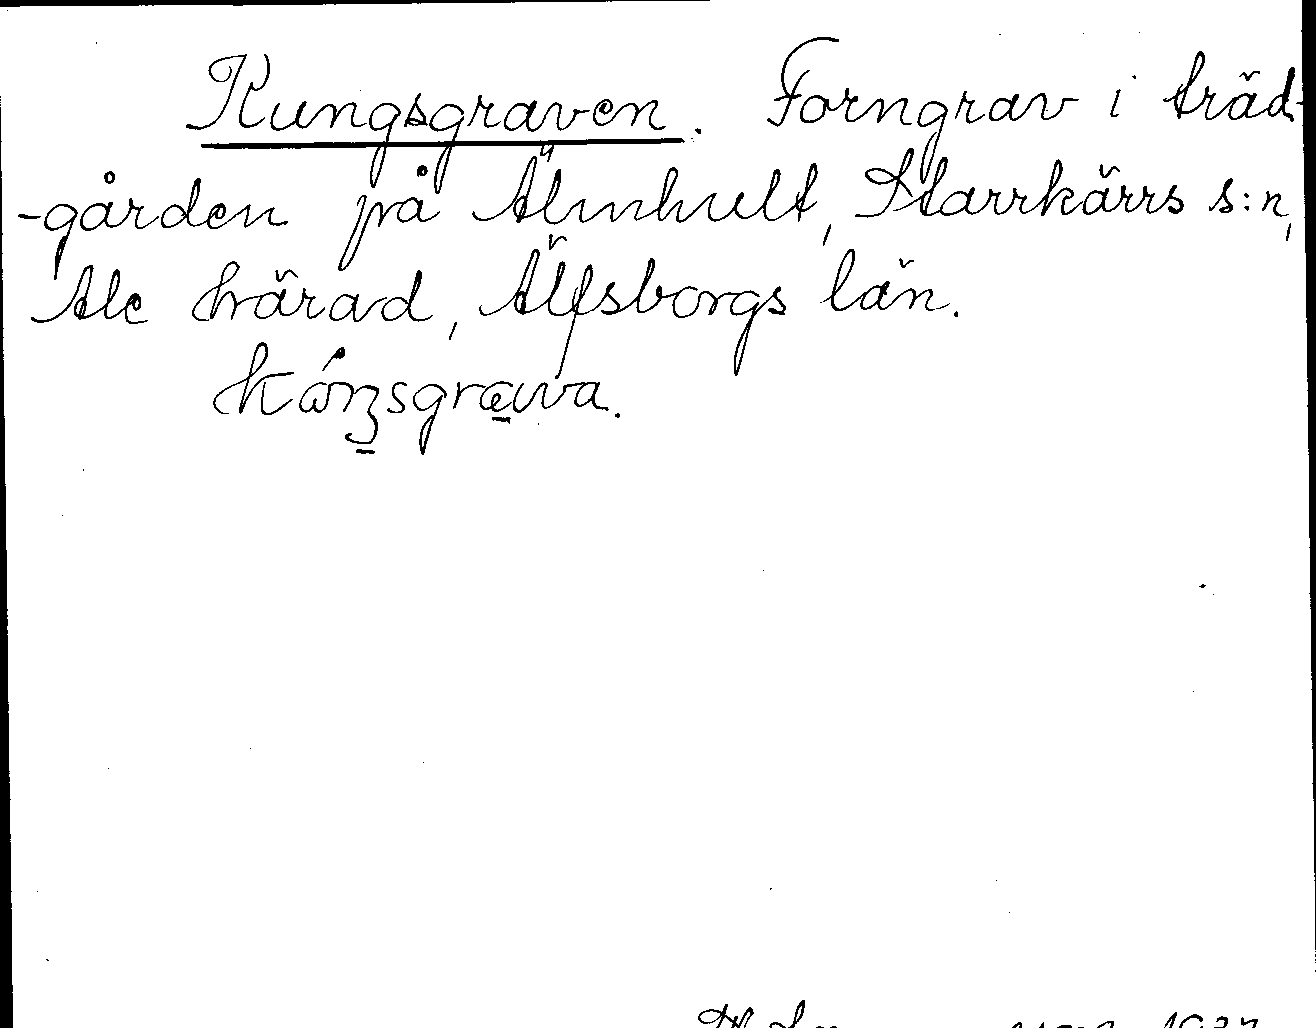 Kungsgraven. Forngrav i träd-
-gården på Älmhult, Starrkärrs s:n,
Ale härad, Älfsborgs län.